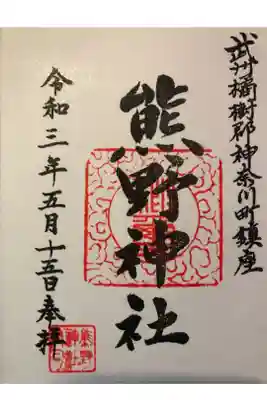 武州橘樹郡神奈川町鎮座
熊野神社
令和三年五月十五日奉拝